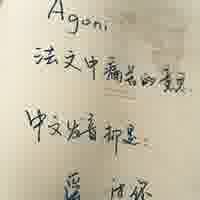 Agoni
法文中痛苦的意思
中文发音抑是: